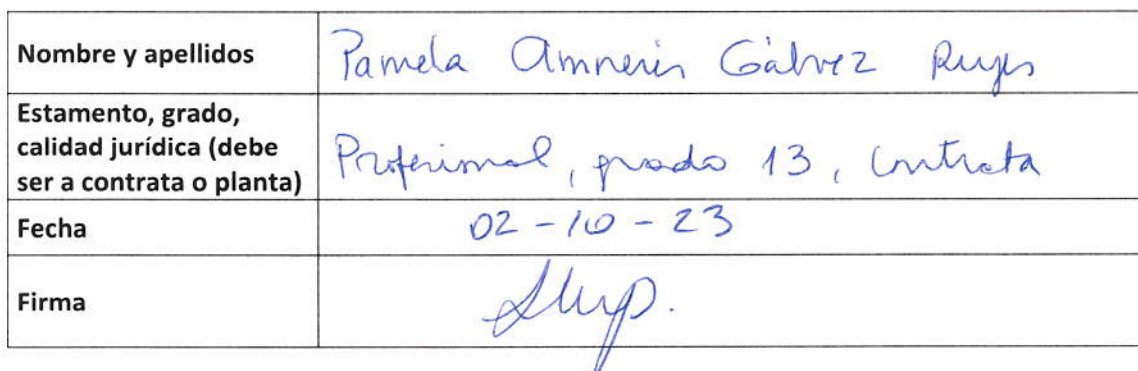 Nombre y apellidos
Pamela Amneris Gálvez Reyes
Estamento, grado,
calidad jurídica (debe
ser a contrata o planta)
Profesional, grado 13, Contrata
Fecha
02-10-23
Firma